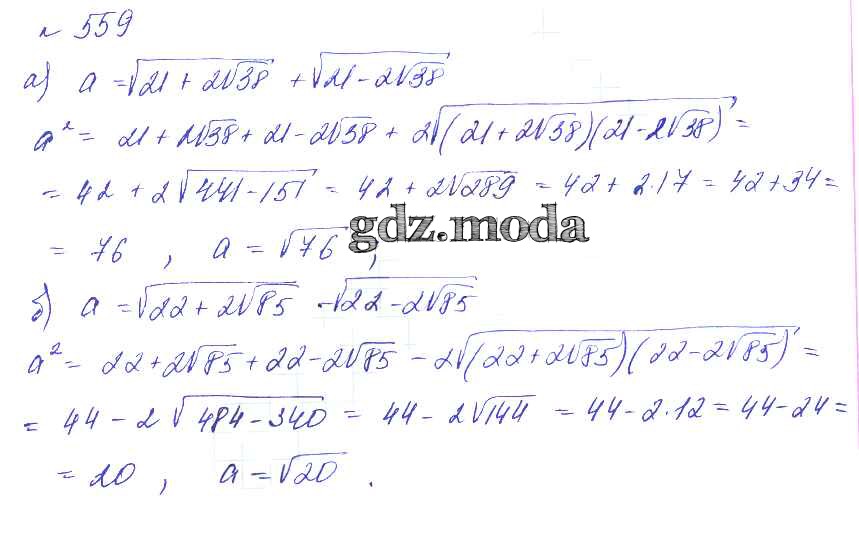 № 559
а) a = √(21 + 2√38) + √(21 - 2√38)
a² = 21 + 2√38 + 21 - 2√38 + 2√((21 + 2√38)(21 - 2√38)) =
= 42 + 2√(441 - 151) = 42 + 2√289 = 42 + 2·17 = 42 + 34 =
= 76 , a = √76 ,
gdz.moda
б) a = √(22 + 2√85) - √(22 - 2√85)
a² = 22 + 2√85 + 22 - 2√85 - 2√((22 + 2√85)(22 - 2√85)) =
= 44 - 2√(484 - 340) = 44 - 2√144 = 44 - 2·12 = 44 - 24 =
= 20 , a = √20 .